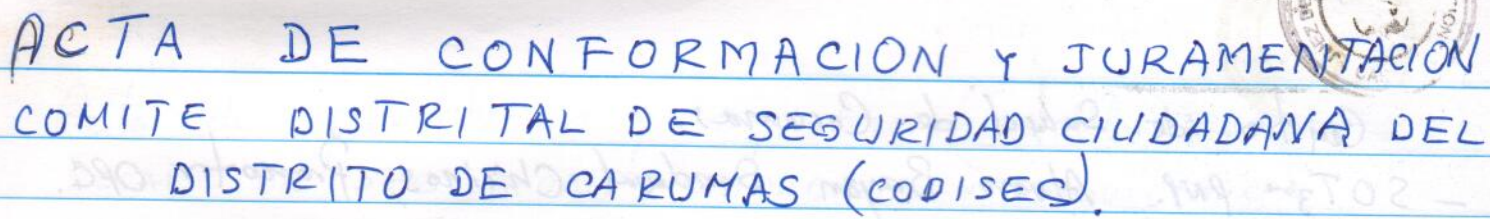 ACTA DE CONFORMACION Y JURAMENTACION
COMITE DISTRITAL DE SEGURIDAD CIUDADANA DEL
DISTRITO DE CARUMAS (CODISEC).